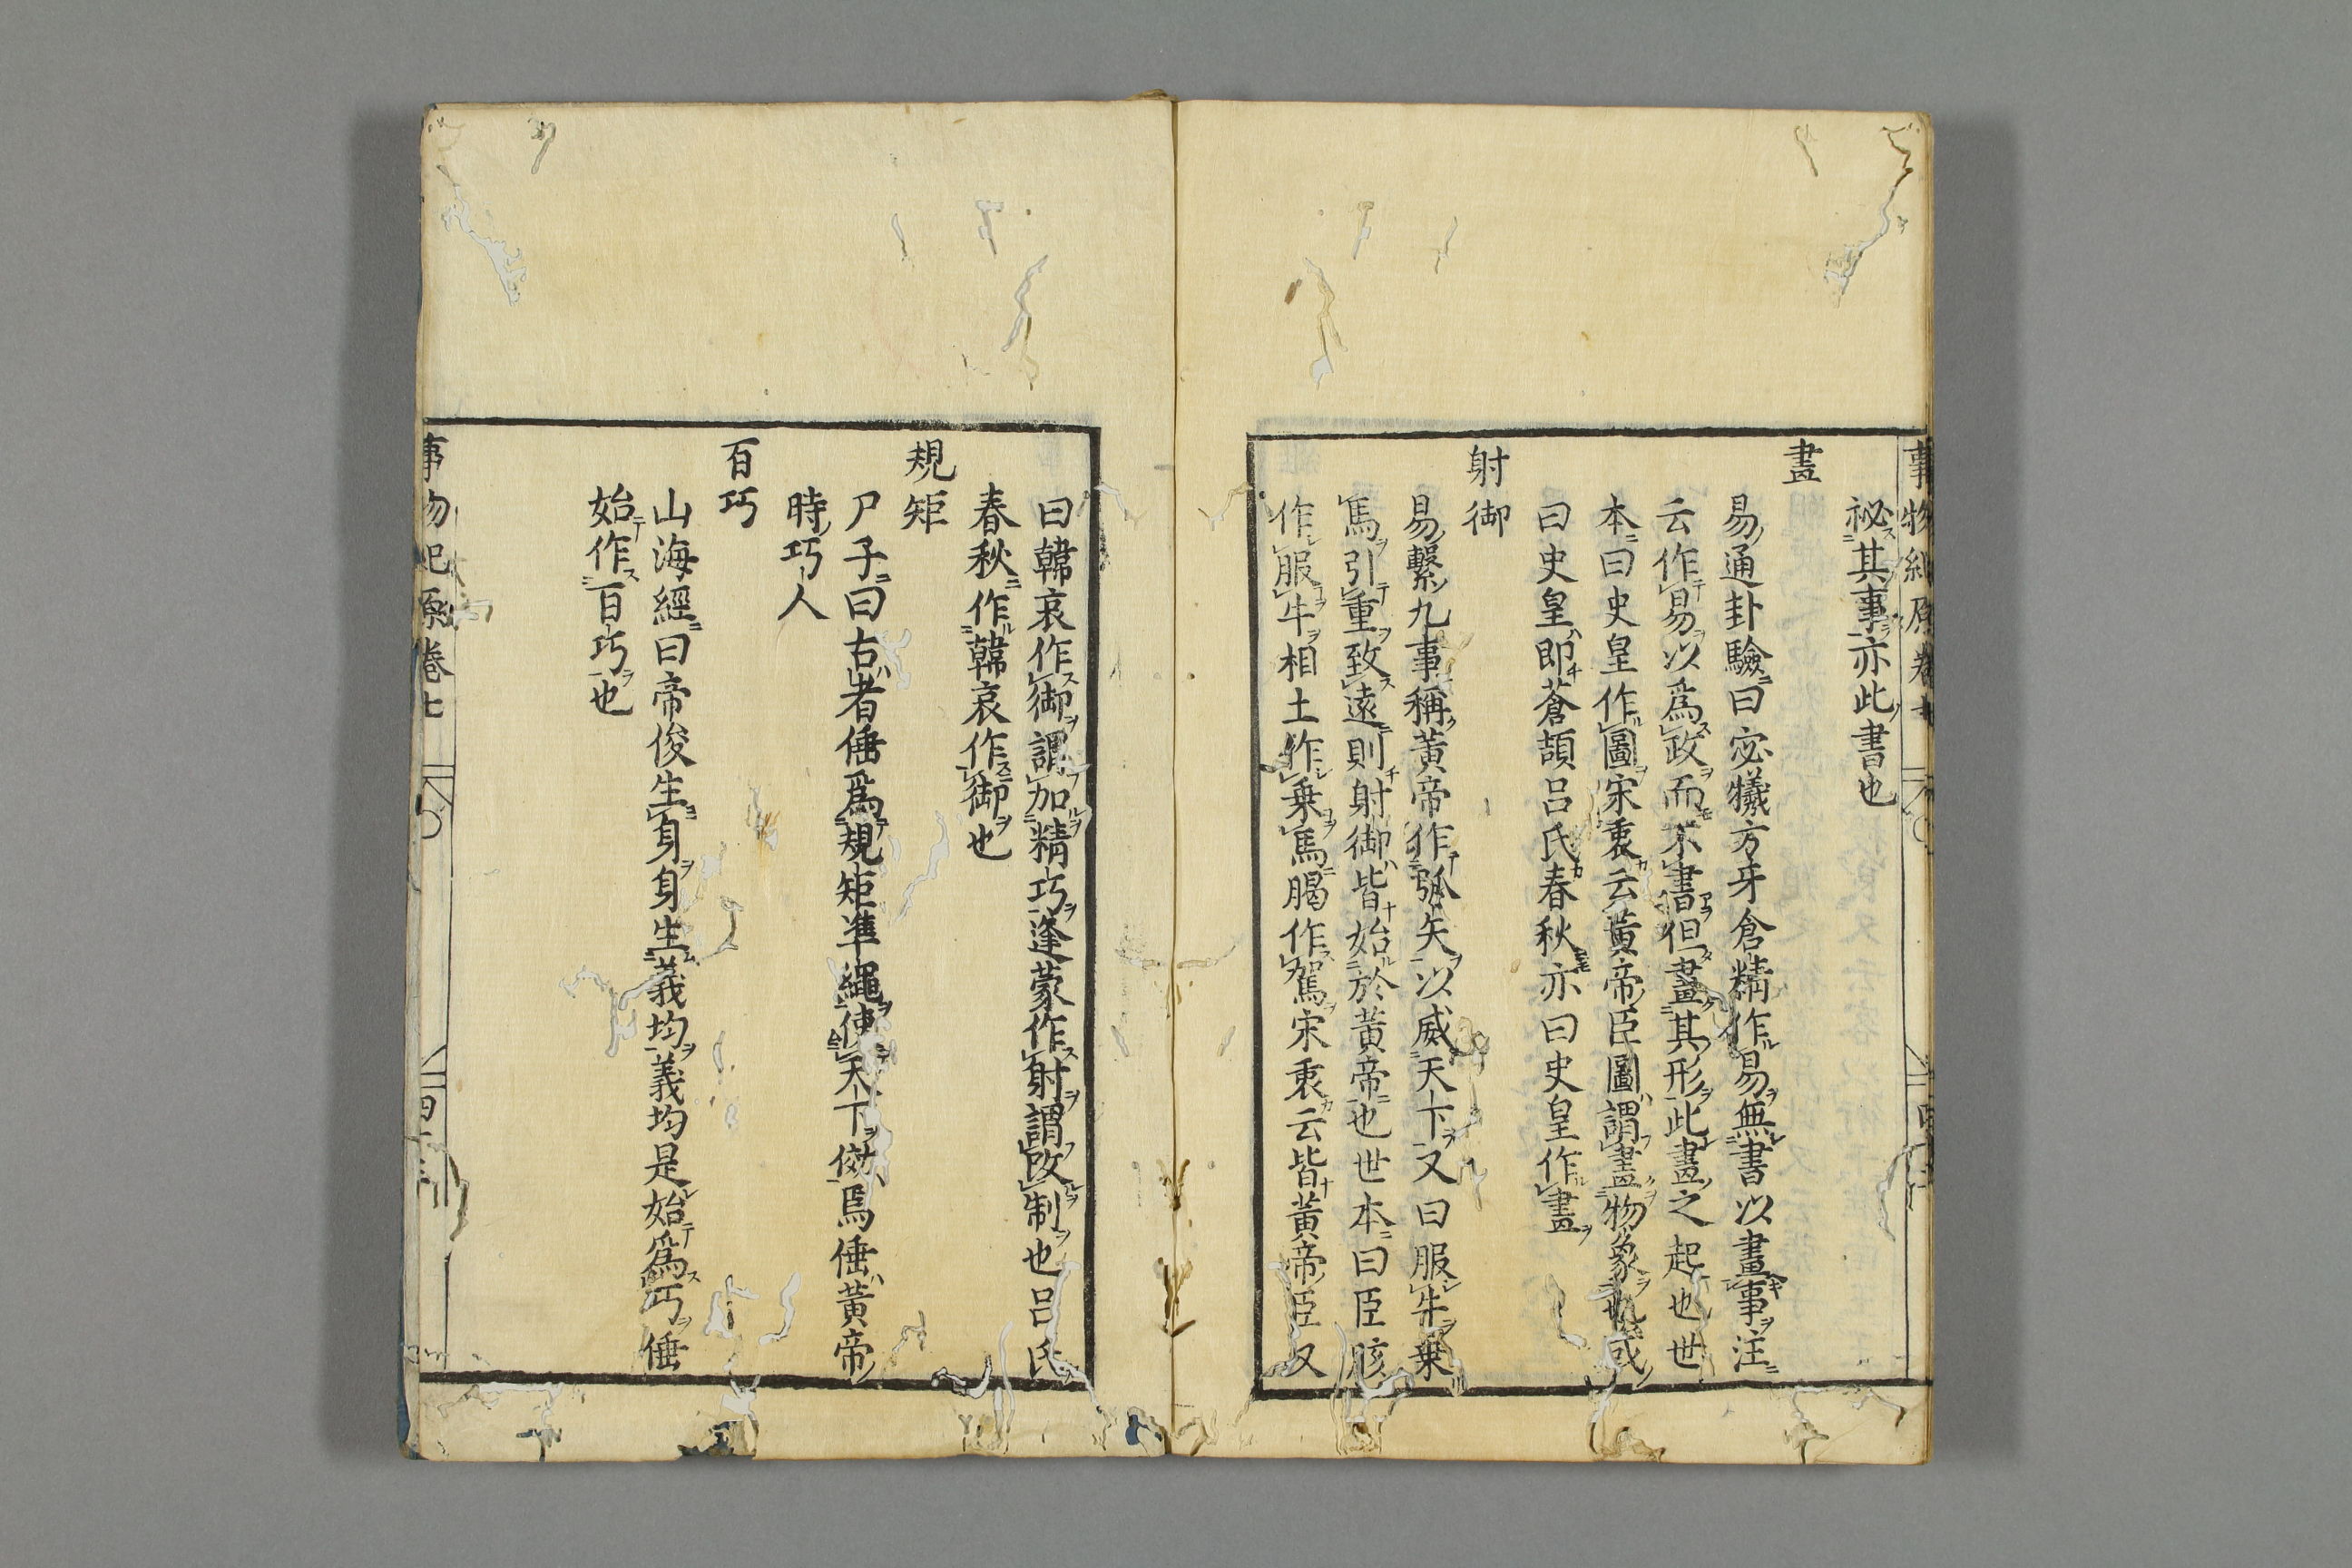 事物紀原卷七
祕其事亦此書也
畫
易通卦驗曰宓犧方牙倉精作易無書以畫事注
云作易以爲政而不書但畫其形此畫之起也世
本曰史皇作圖宋衷云黃帝臣圖謂畫物象也或
曰史皇即蒼頡呂氏春秋亦曰史皇作畫
射御
易繫九事稱黃帝作弧矢以威天下又曰服牛乗
馬引重致遠則射御皆始於黃帝也世本曰臣胲
作服牛相土作乗馬腸作駕宋衷云皆黃帝臣又
曰韓哀作御謂加精巧逢蒙作射謂改制也呂氏
春秋作韓哀作御也
規矩
尸子曰古者倕爲規矩準繩使天下傚焉倕黃帝
時巧人
百巧
山海經曰帝俊生身身生義均義均是始爲巧倕
始作百巧也
事物紀原卷七